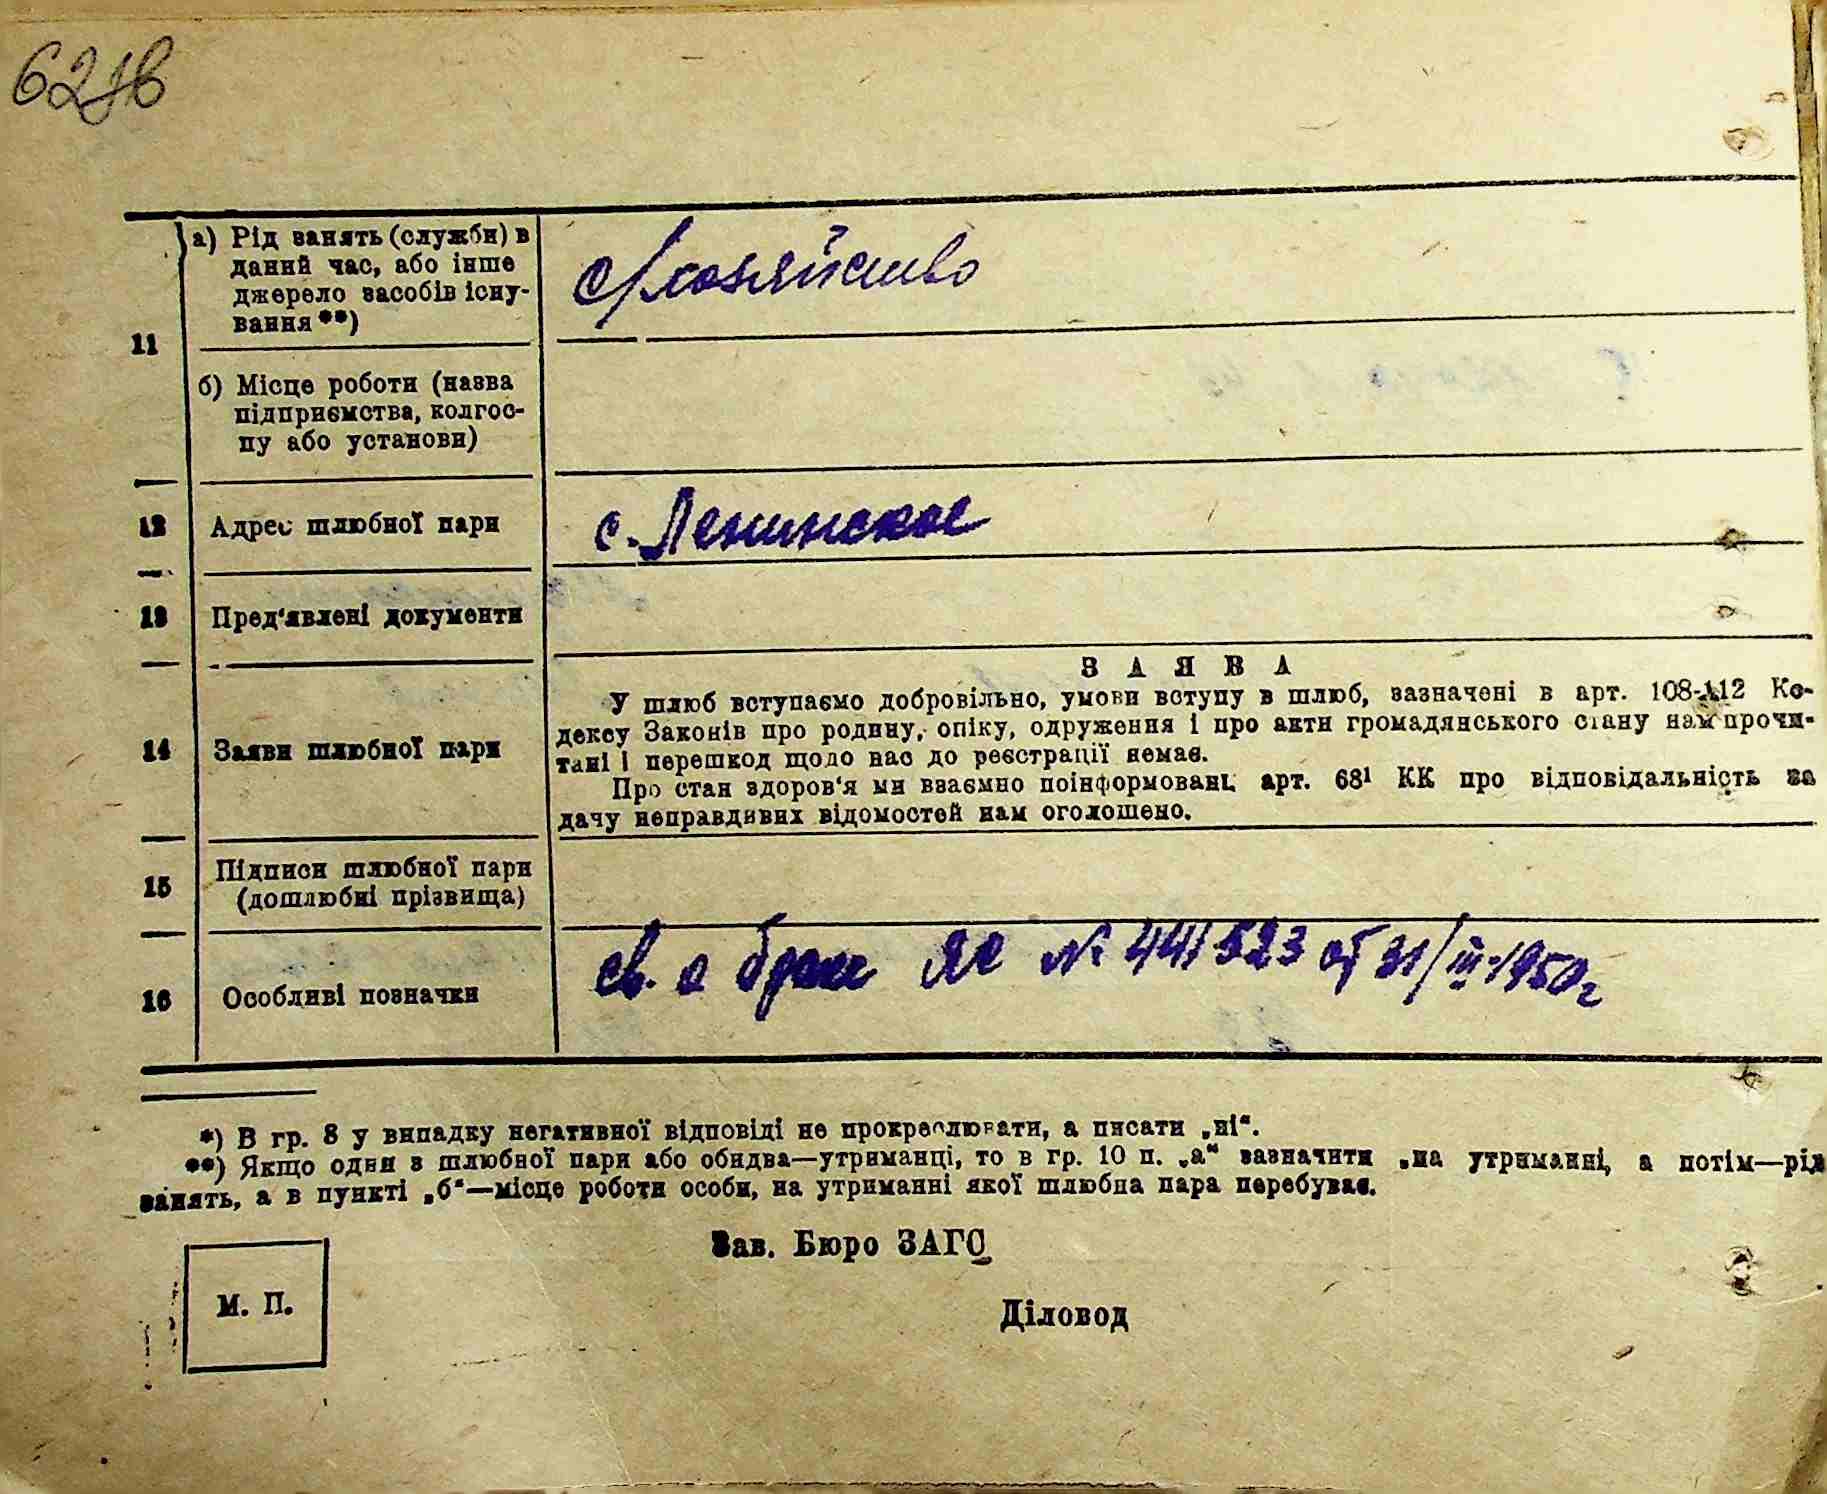 62
11
а) Рід занять (служби) в
даний час, або інше
джерело засобів існу-
вання **)
с/хозяйство
б) Місце роботи (назва
підприємства, колгос-
пу або установи)
12
Адрес шлюбної пари
с. Ленинское
13
Пред'явлені документи
14
Заяви шлюбної пари
ЗАЯВА
У шлюб вступаємо добровільно, умови вступу в шлюб, зазначені в арт. 108-112 Ко-
дексу Законів про родину, опіку, одруження і про акти громадянського стану нам прочи-
тані і перешкод щодо нас до реєстрації немає.
Про стан здоров'я ми взаємно поінформовані, арт. 68¹ КК про відповідальність за
дачу неправдивих відомостей нам оголошено.
15
Підписи шлюбної пари
(дошлюбні прізвища)
16
Особливі позначки
св. о браке ЯЕ № 441523 от 31/III-1950г
*) В гр. 8 у випадку негативної відповіді не прокреслювати, а писати „ні“.
**) Якщо один з шлюбної пари або обидва—утриманці, то в гр. 10 п. „а“ зазначити „на утриманні, а потім—рід
занять, а в пункті „б“—місце роботи особи, на утриманні якої шлюбна пара перебуває.
Зав. Бюро ЗАГС
М. П.
Діловод